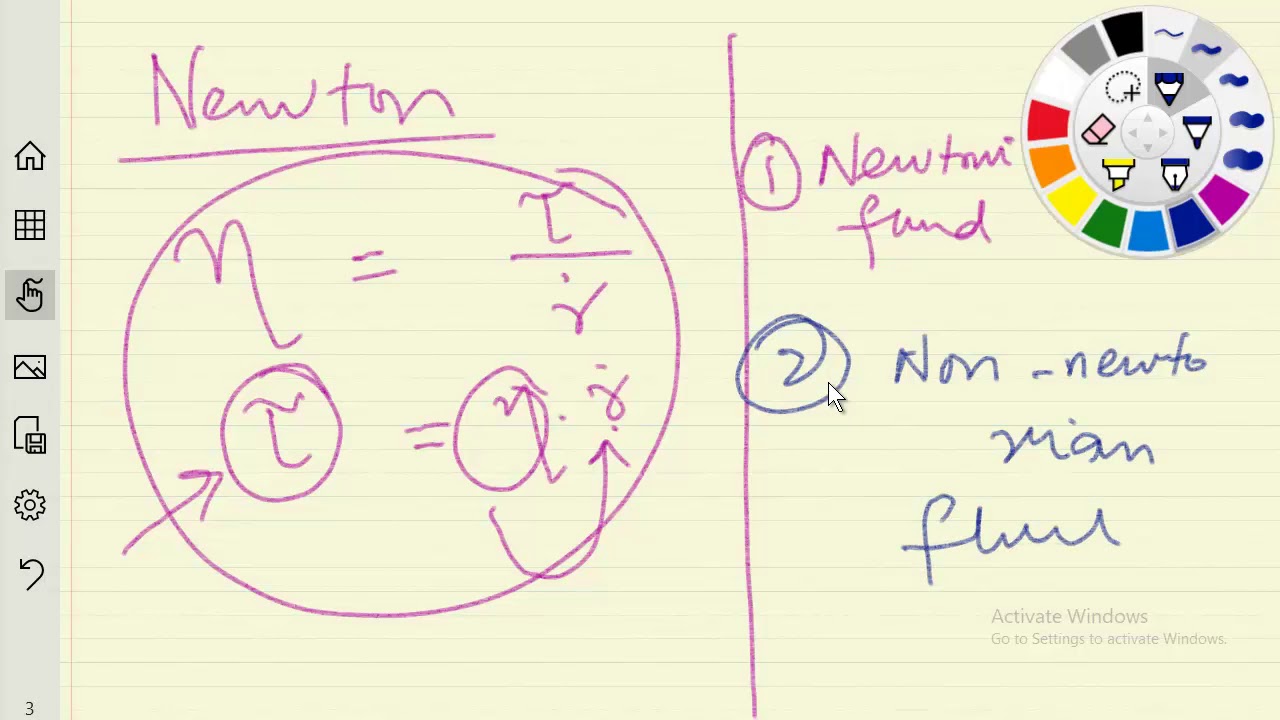 Newton
η = τ / γ̇
τ = η · γ̇
① Newtoni
fluid
② Non - newto
nian
fluid
Activate Windows
Go to Settings to activate Windows.
3